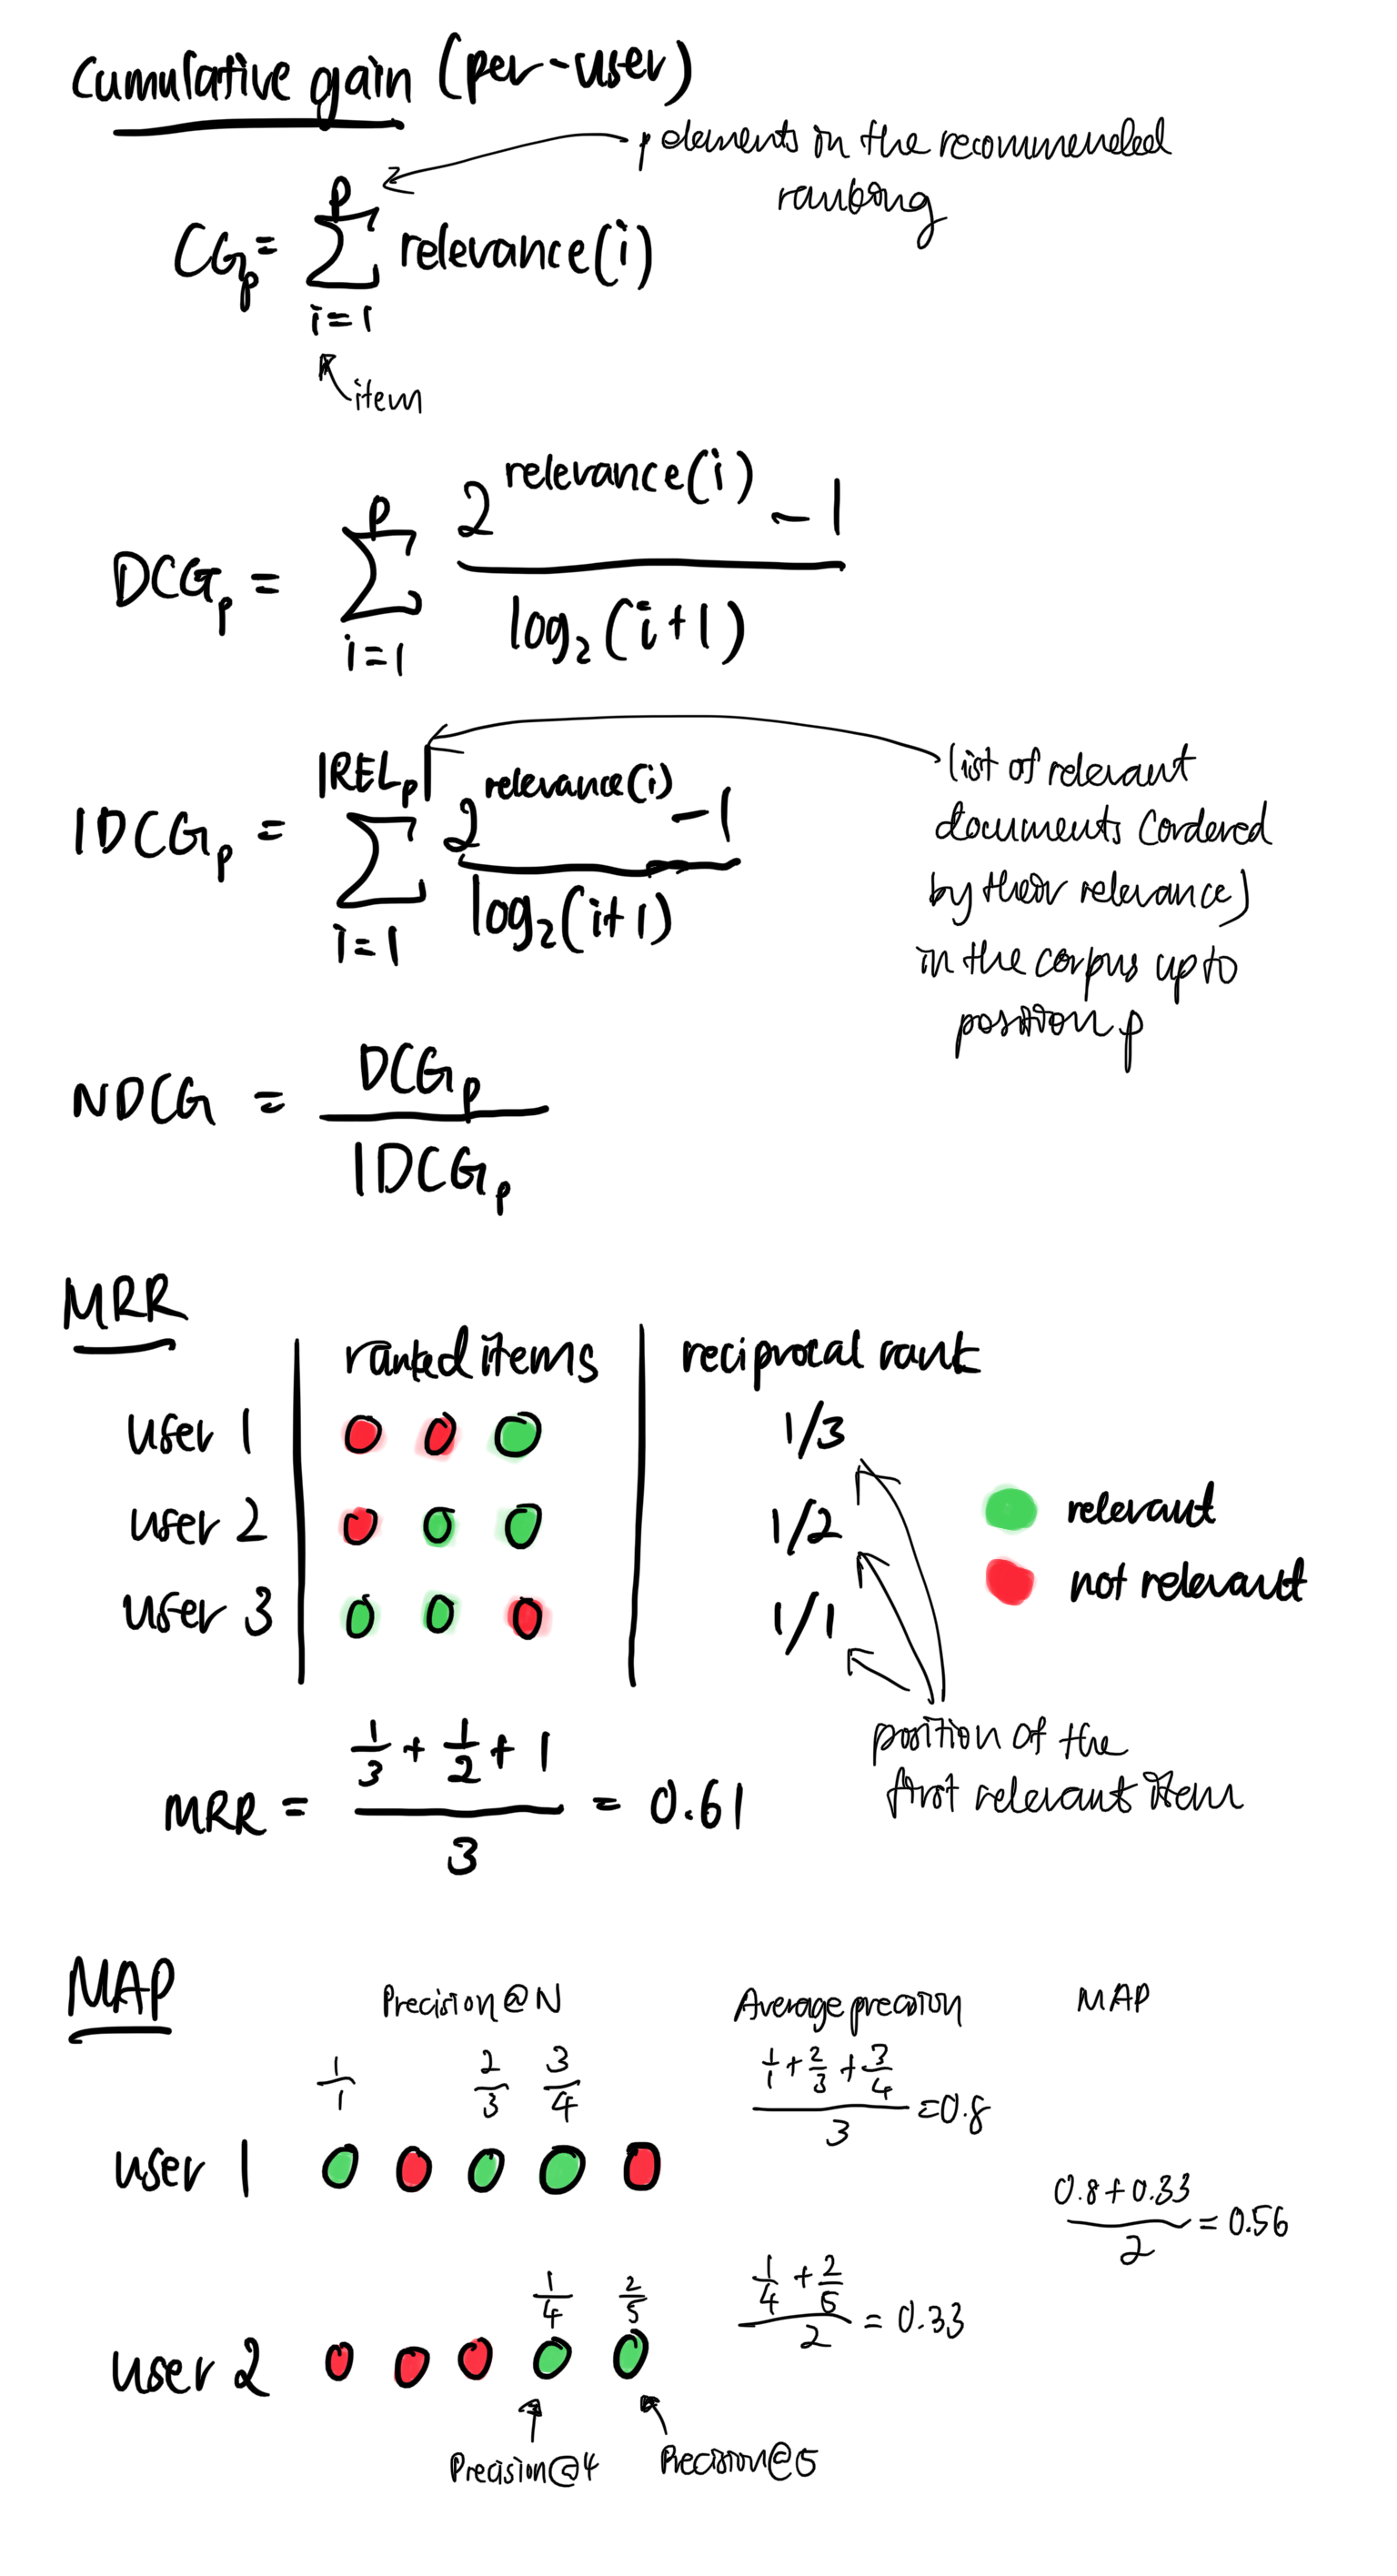 Cumulative gain (per-user)
p elements in the recommended
ranking
CGₚ = Σ relevance(i)
p
i=1
item
DCGₚ = Σ (2^relevance(i) - 1) / log₂(i+1)
p
i=1
IDCGₚ = Σ (2^relevance(i) - 1) / log₂(i+1)
|RELₚ|
i=1
list of relevant
documents (ordered
by their relevance)
in the corpus up to
position p
NDCG = DCGₚ / IDCGₚ
MRR
ranked items reciprocal rank
user 1 1/3
user 2 1/2
user 3 1/1
relevant
not relevant
position of the
first relevant item
MRR = (1/3 + 1/2 + 1) / 3 = 0.61
MAP
Precision@N Average precision MAP
1/1 2/3 3/4
user 1
(1/1 + 2/3 + 3/4) / 3 = 0.8
(0.8 + 0.33) / 2 = 0.56
1/4 2/5
user 2
(1/4 + 2/5) / 2 = 0.33
Precision@4 Precision@5